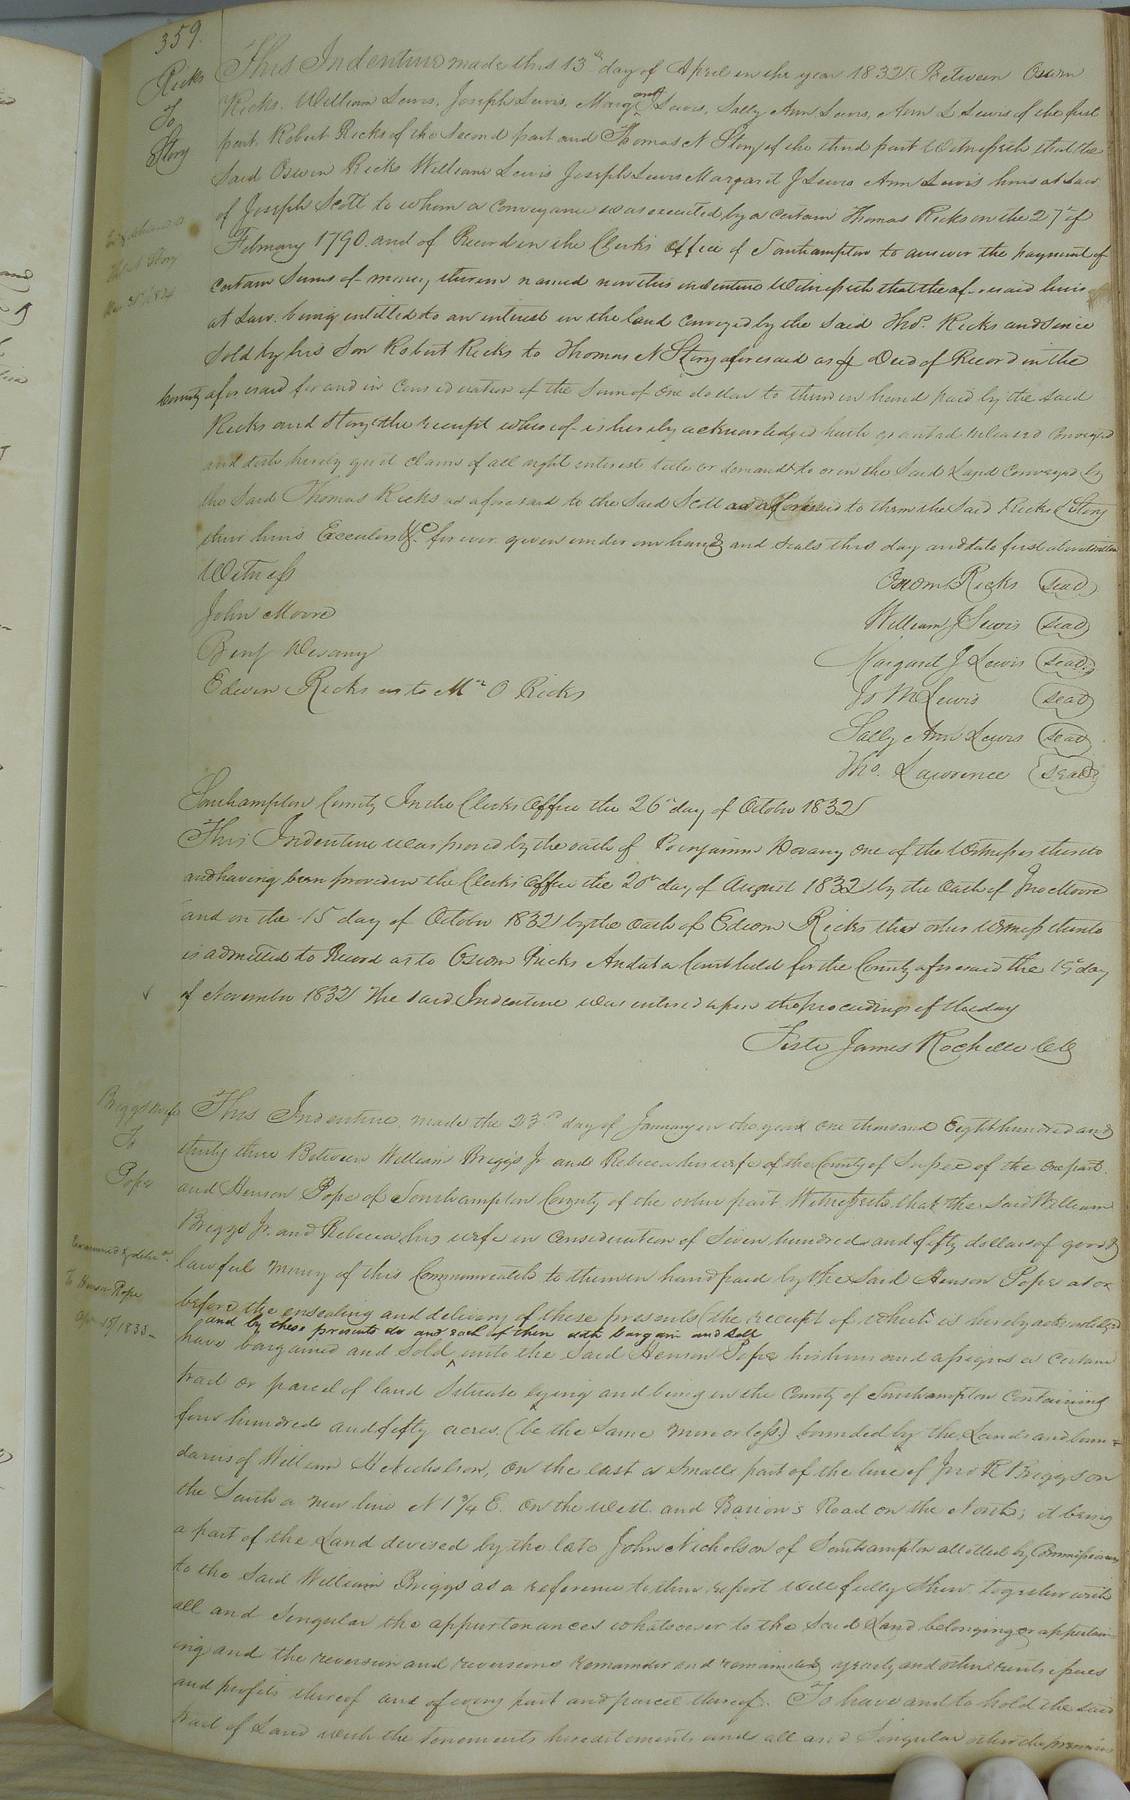 359.
Ricks
To
Story
This Indenture made this 13th day of April in the year 1832 Between Oswin
Ricks. William Lewis, Joseph Lewis, Marg and J Lewis, Sally Ann Lewis, Ann L Lewis of the first
part. Robert Ricks of the Second part and Thomas N Story of the third part Witnesseth that the
Said Oswin Ricks William Lewis Joseph Lewis Margaret J Lewis Ann Lewis heirs at Law
of Joseph Scott to whom a conveyance was executed by a certain Thomas Ricks on the 27th of
February 1790. and of Record in the Clerks office of Southampton to answer the payment of
certain Sums of money therein named now this indenture Witnesseth that the aforesaid heirs
at Law. being intitled to an interest in the land Conveyed by the said Thos. Ricks and Since
Sold by his Son Robert Ricks to Thomas N Story aforesaid as of Deed of Record in the
County aforesaid for and in Consideration of the Sum of one dollar to them in hand paid by the said
Ricks and Story the receipt whereof is hereby acknowledged hath granted released Conveyed
and doth hereby quit claim of all right interest title or demand to or in the Said Land Conveyed by
the Said Thomas Ricks as aforesaid to the Said Scott as aforesaid to them the Said Ricks & Story
their heirs Executors &c. forever given under our hands and seals this day and date first above written
Witness
John Moore
Benj Devany
Edwin Ricks as to Mr O Ricks
Oswin Ricks (seal)
William J Lewis (seal)
Margaret J Lewis (seal)
Jo M Lewis (seal)
Sally Ann Lewis (seal)
Tho. Lawrence (seal)
Southampton County In the Clerks Office the 26th day of October 1832
This Indenture was proved by the oath of Benjamin Devany one of the Witnesses thereto
and having been proved in the Clerks Office the 20th day of August 1832 by the Oath of Jno Moore
and on the 15 day of October 1832 by the oath of Edwin Ricks the other Witness thereto
is admitted to Record as to Oswin Ricks And at a Court held for the County aforesaid the 19th day
of November 1832 The said Indenture was entered upon the proceedings of the day
Teste James Rochelle CC
Briggs & wife
To
Pope
Examined & deliv d
To Henson Pope
Apr 15/1835
This Indenture, made the 23rd day of January in the year one thousand Eight hundred and
thirty three Between William Briggs Jr and Rebecca his wife of the County of Sussex of the one part.
and Henson Pope of Southampton County of the other part Witnesseth that the Said William
Briggs Jr. and Rebecca his wife in Consideration of Seven hundred and fifty dollars of good &
lawful money of this Commonwealth to them in hand paid by the Said Henson Pope at or
before the ensealing and delivery of these presents (the receipt of which is hereby acknowledged
and by these presents do and each of them doth bargain and sell
have bargained and Sold unto the Said Henson Pope his heirs and assigns a certain
tract or parcel of land Situate lying and being in the County of Southampton Containing
four hundred and fifty acres, (be the Same more or less) bounded by the Lands and boun=
daries of William H Nicholson, on the east a Small part of the line of Jno R Briggs on
the South a new line N 1 3/4 E. on the West and Barrow's Road on the North; it being
a part of the Land devised by the late John Nicholson of Southampton allotted by Commissioners
to the Said William Briggs as a reference to their report will fully shew together with
all and Singular the appurtenances whatsoever to the Said Land belonging or appertain
ing and the reversion and reversions remainder and remainders yearly and other rents issues
and profits thereof and of every part and parcel thereof. To have and to hold the said
tract of Land with the tenements hereditaments and all and Singular other the premises